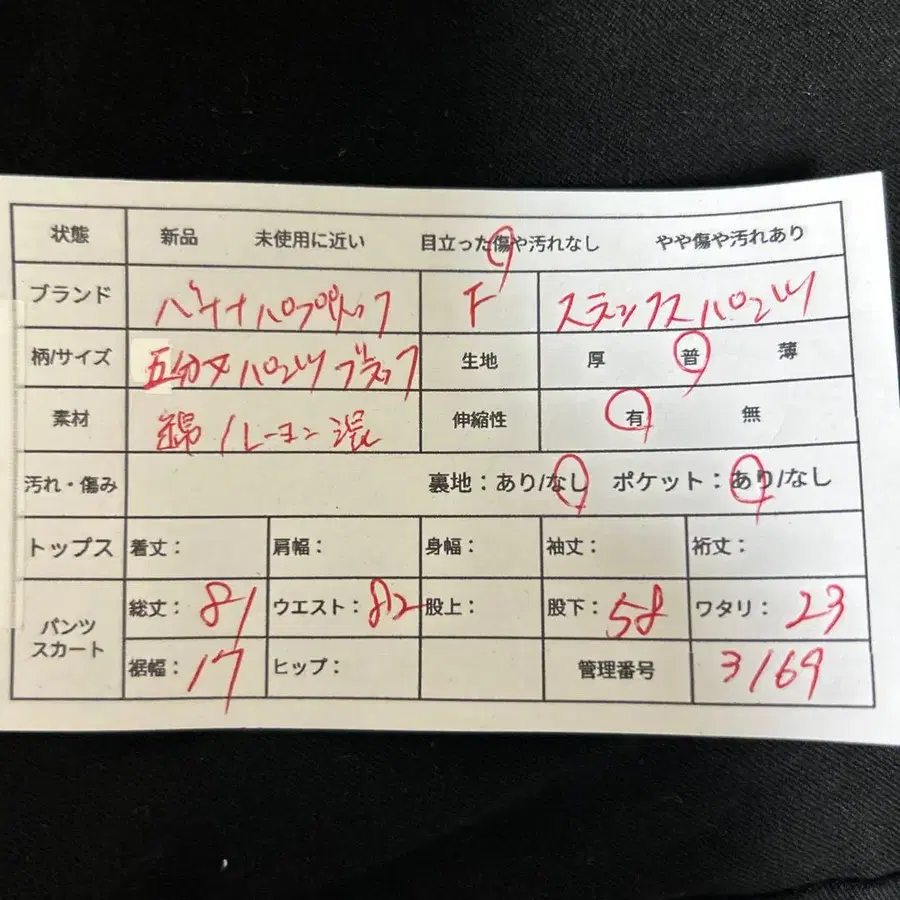 状態 新品 未使用に近い 目立った傷や汚れなし やや傷や汚れあり
ブランド バナナパブリック F スラックスパンツ
柄/サイズ 五分丈パンツ ブラック 生地 厚 普 薄
素材 綿/レーヨン混 伸縮性 有 無
汚れ・傷み 裏地：あり/なし ポケット：あり/なし
トップス 着丈： 肩幅： 身幅： 袖丈： 裄丈：
パンツ スカート 総丈：81 ウエスト：82 股上： 股下：58 ワタリ：23
裾幅：17 ヒップ： 管理番号 3169